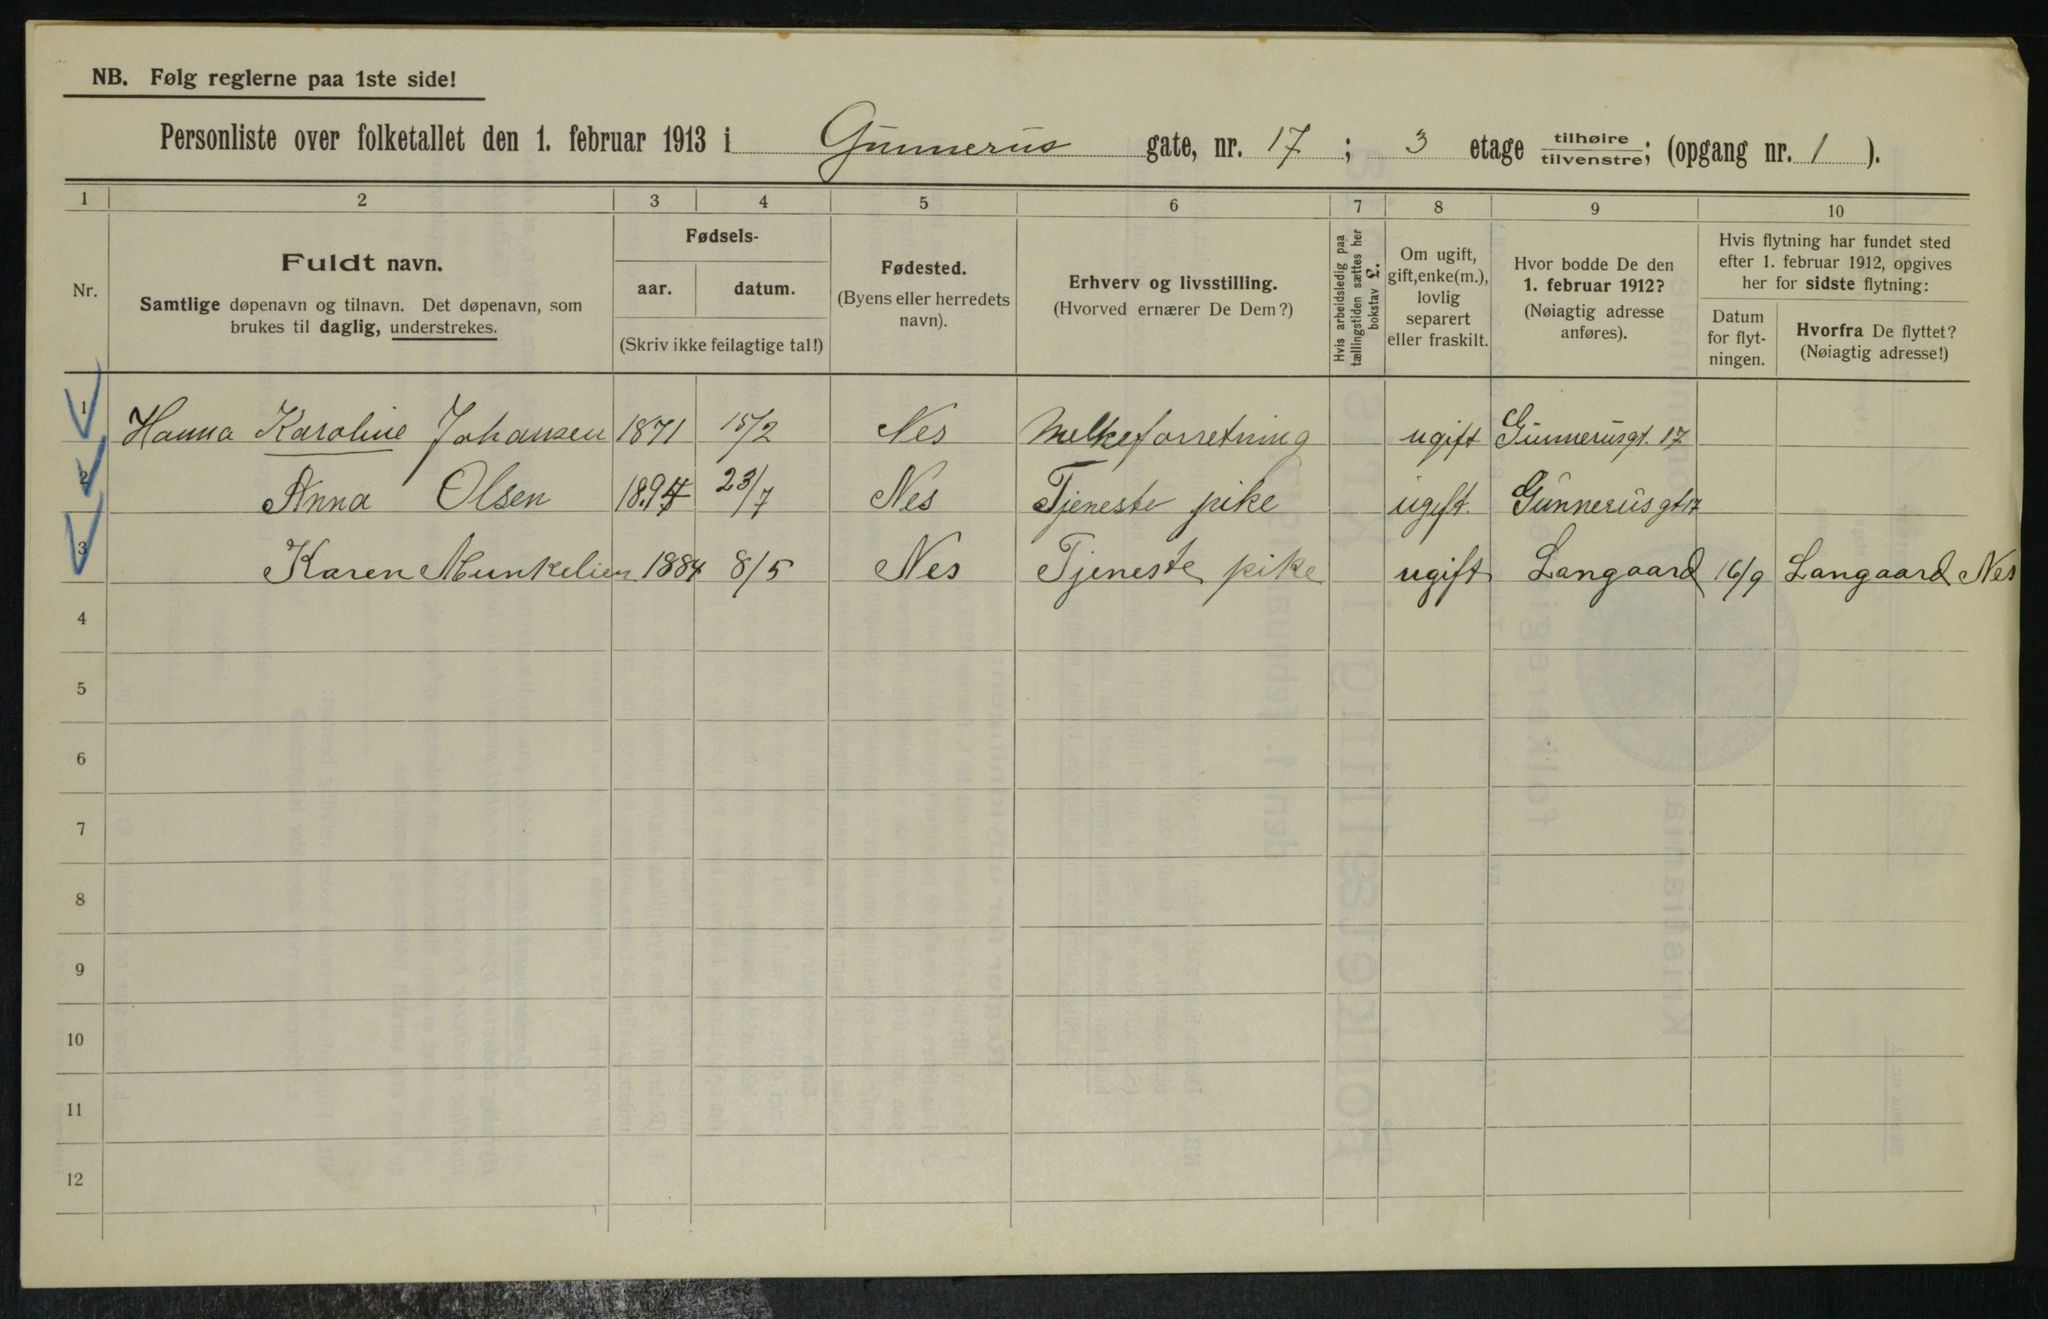 NB. Følg reglerne paa 1ste side!
Personliste over folketallet den 1. februar 1913 i Gunnerus gate, nr. 17 ; 3 etage tilhøire tilvenstre; (opgang nr. 1 ).
1 2 3 4 5 6 7 8 9 10
Nr.
Fuldt navn.
Samtlige døpenavn og tilnavn. Det døpenavn, som
brukes til daglig, understrekes.
Fødsels-
aar. datum.
(Skriv ikke feilagtige tal!)
Fødested.
(Byens eller herredets
navn).
Erhverv og livsstilling.
(Hvorved ernærer De Dem?)
Hvis arbeidsledig paa
tællingstiden sættes her
bokstav L.
Om ugift,
gift, enke(m.),
lovlig
separert
eller fraskilt.
Hvor bodde De den
1. februar 1912?
(Nøiagtig adresse
anføres).
Hvis flytning har fundet sted
efter 1. februar 1912, opgives
her for sidste flytning:
Datum
for flyt-
ningen.
Hvorfra De flyttet?
(Nøiagtig adresse!)
1 Hanna Karoline Johansen 1871 15/2 Nes Melkeforretning ugift Gunnerusgt. 17
2 Anna Olsen 1894 23/7 Nes Tjeneste pike ugift. Gunnerusgt 17
3 Karen Munkelien 1884 8/5 Nes Tjeneste pike ugift Langaard 16/9 Langaard Nes
4
5
6
7
8
9
10
11
12